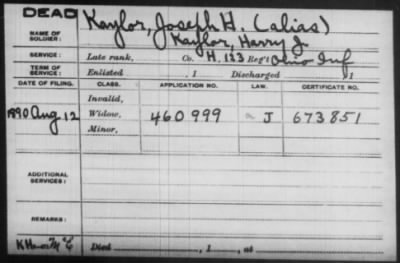 DEAD
NAME OF SOLDIER: Kaylor, Joseph H. (alias)
Kaylor, Harry J.
SERVICE: Late rank, Co. H. 123 Reg't Ohio Inf
TERM OF SERVICE: Enlisted , 1 Discharged , 1
DATE OF FILING. CLASS. APPLICATION NO. LAW. CERTIFICATE NO.
Invalid,
1890 Aug 12 Widow, 460999 J 673851
Minor,
ADDITIONAL SERVICES:
REMARKS:
Died , 1 , at